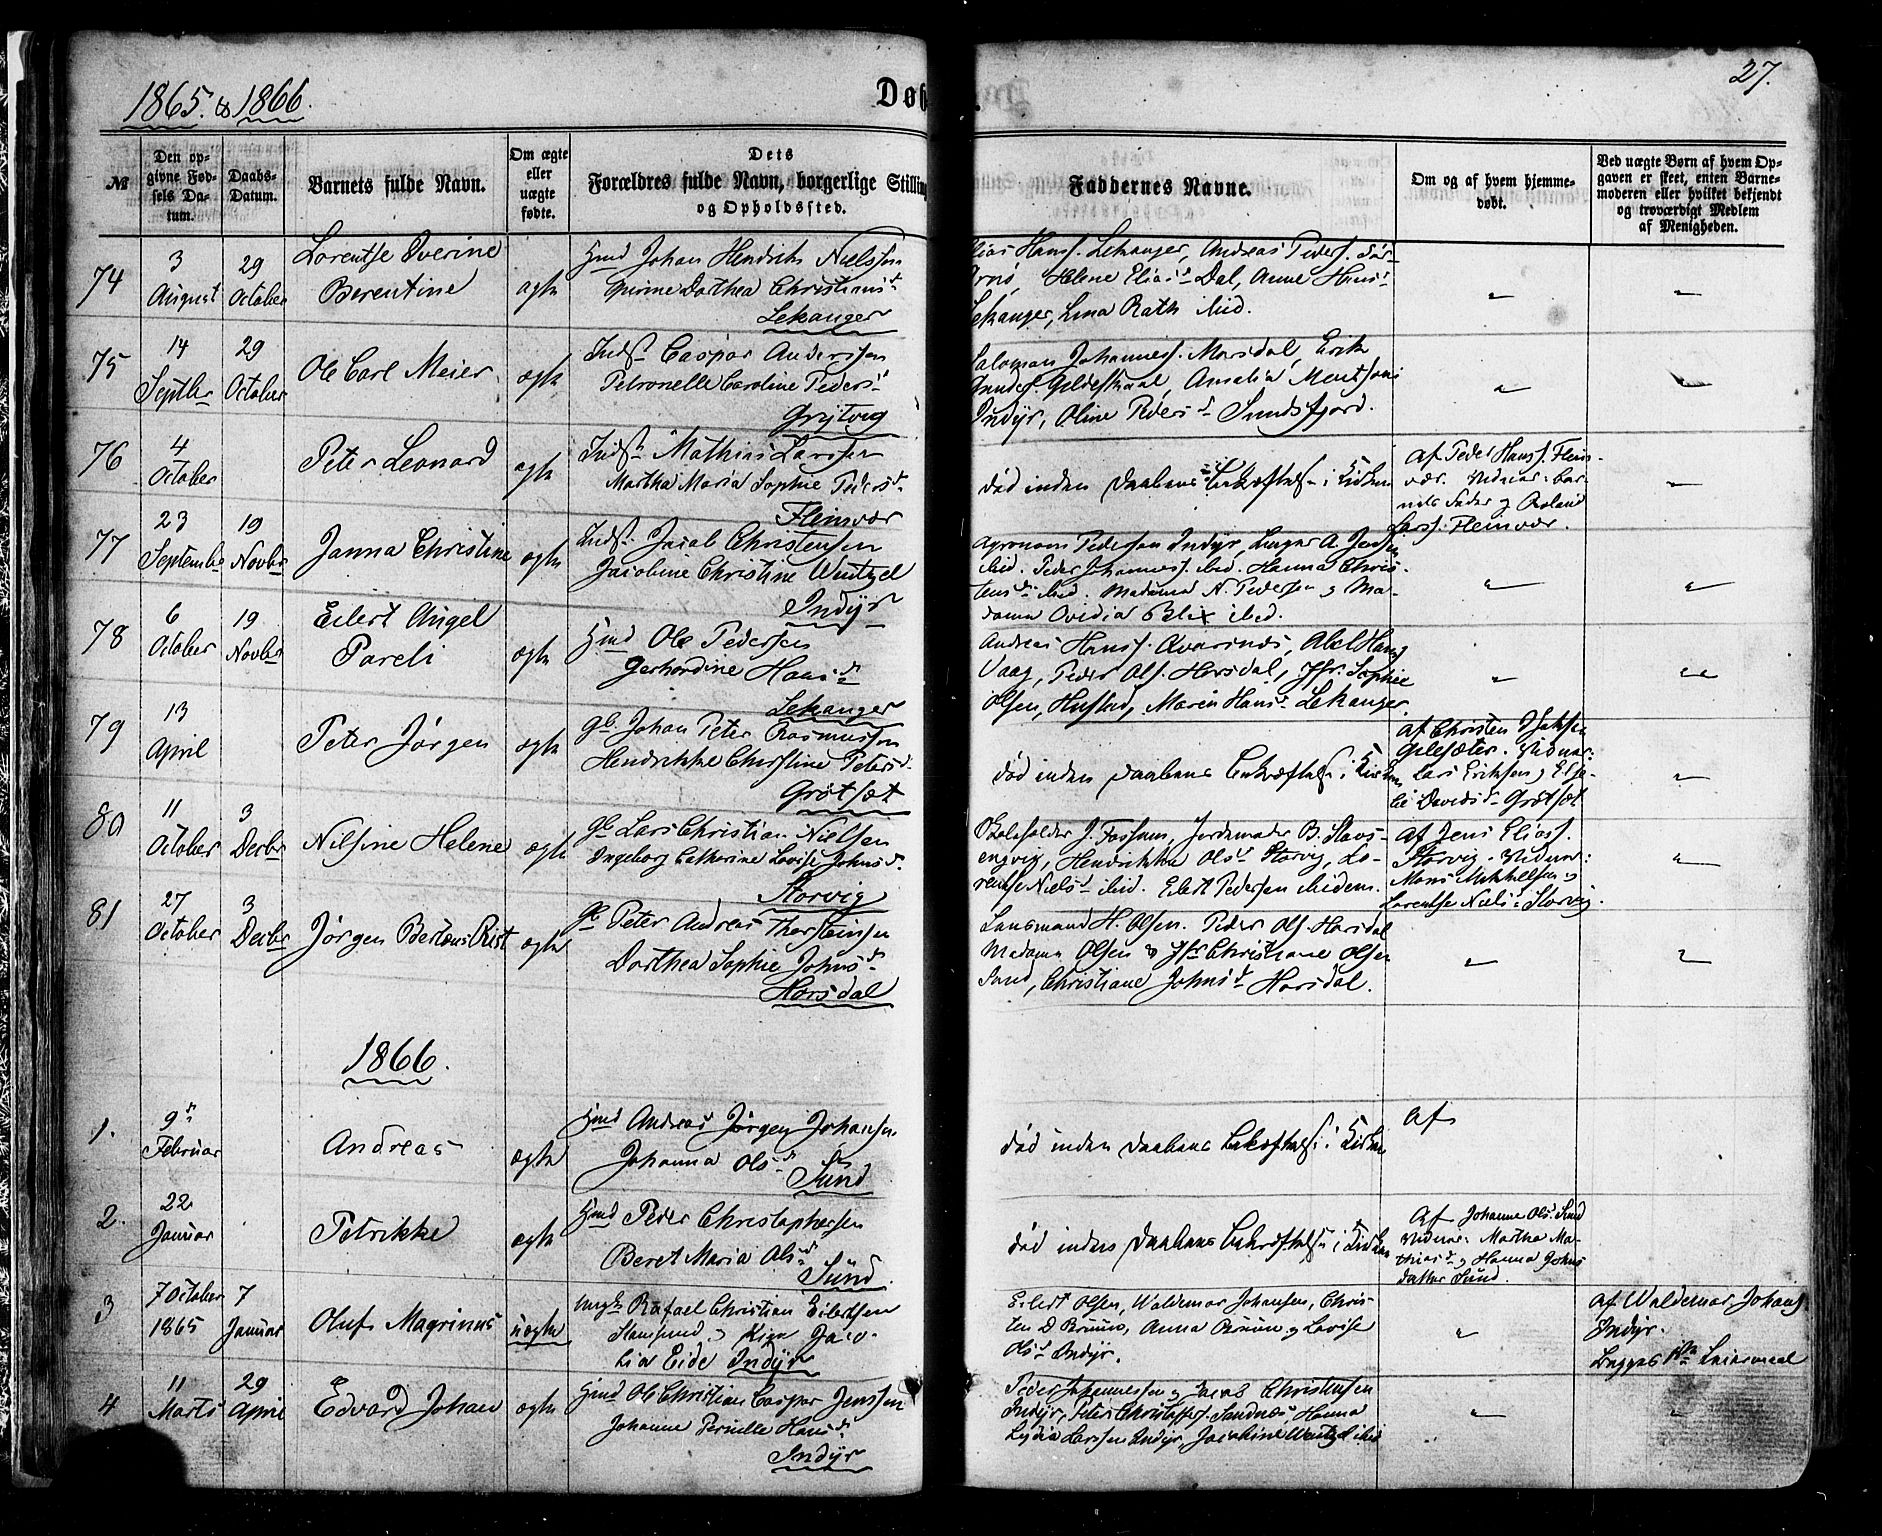 1865. & 1866.
Døb
27.
№
Den op-
givne Fød-
sels Da-
tum.
Daabs-
Datum.
Barnets fulde Navn.
Om ægte
eller
uægte
fødte.
Dets
Forældres fulde Navn, borgerlige Stilling
og Opholdssted.
Faddernes Navne.
Om og af hvem hjemme-
døbt.
Ved uægte Børn af hvem Op-
gaven er skeet, enten Barne-
moderen eller hvilket bekjendt
og troværdigt Medlem
af Menigheden.
74
3
August
29
October
Lorentse Overine
Berentine
ægte
Gmd Johan Hendrik Nielssen
Dorthea Christiansd.
Lekanger
Elias Hanss. Lekanger, Andreas Peders. Sør-
Arnø, Helene Elias d. Dal, Anne Hans d.
Lekanger, Lina Rath ibid.
75
14
Septbr
29
October
Ole Carl Meier
ægte
Indst. Caspar Anderssen
Petronelle Caroline Pedersd.
Grytvig
Salomon Johanness. Marsdal, Erik
Gildeskaal, Amalia Mentsen
Indyr, Oline Peders d. Sundsfjord.
76
4
October
Peter Leonard
ægte
Indst. Mathias Larssen
Martha Maria Sophie Pedersd.
Fleinvær
død inden Daabens Bekræftelse i Kirken
af Peder Hanss. Flein-
vær. Vidner: Bar-
nets Fader og Roland
Larss. Fleinvær.
77
23
Septembr
19
Novbr
Janna Christine
ægte
Indst. Jacob Christensen
Jacobine Christine Wentzel
Indyr
Agronom Pedersen Indyr, A. Jensen
ibid. Peder Johanness. ibid. Hanna Chris-
tens d. ibid. Madame N. Pedersen og Ma-
dame Ovidia Blix ibid.
78
6
October
19
Novbr
Eilert Angel
Pareli
ægte
Gmd Ole Pedersen
Gerhardine Hansd.
Lekanger
Andreas Hanss. Kvarsnes, Abel Hans
Vaag, Peder Ols. Horsdal, Jfr. Sophie
Olsen, Hustad, Maren Hans d. Lekanger.
79
13
April
Peter Jørgen
ægte
gb. Johan Peter Rasmussen
Hendrikke Christine Petersd.
Grøtsæt
død inden Daabens Bekræftelse i Kirken
af Christen Isaksen
Gilesæter. Vidner:
Lars Eriksen og Else-
bè Davids d. Grøtsæt
80
11
October
3
Decbr
Nilsine Helene
ægte
gb Lars Christian Nielsen
Ingeborg Catharine Lovise Johnsd.
Storvig
Skoleholder J. Fossum, Jordemoder B. Stavs-
engvig, Hendrikke Ols d. Storvig, Lo-
rentse Niels d. ibid. Eilert Pedersen ibidem.
af Jens Eliass.
Storvig. Vidner:
Mons Mikkelsen og
Lorentse Niels d. Storvig.
81
27
October
3
Decbr
Jørgen Berteus Rist
ægte
gb Peter Andreas Thorsteinsen
Dorthea Sophie Johnsd.
Horsdal
Lensmand H. Olsen. Peder Ols. Horsdal
Madame Olsen & Jfr Christiane Olsen
Sund, Christiane Johns d. Horsdal.
1866.
1.
9d
Februar
Andreas
ægte
Gmd Andreas Jørgen Johansen
Johanna Olsd.
Sund
død inden Daabens Bekræftelse i Kirken
af
2.
22
Januar
Petrikke
ægte
Gmd Peder Christophersen
Beret Maria Olsd.
Sund
død inden Daabens Bekræftelse i Kirken
af Johanne Ols d. Sund
Vidner: Martha Ma-
thias d. og Hanna Johns
datter Sund.
3
7 October
1865
7
Januar
Oluf Magrinus
uægte
Ungk. Rafael Christian Eilertsen
Stamsund og Pige Jaco-
bia Eide Indyr
Eilert Olsen, Waldemar Johansen, Chris-
ten D Bruun, Anna Bruun og Lovise
Ols d. Indyr.
af Waldemar Johans.
Indyr.
4
11
Marts
29
April
Edvard Johan
ægte
Gmd Ole Christian Caspar Jenssen
Johanne Pernille Hansd.
Indyr
Peder Johannessen og Jacob Christensen
Indyr, Peter Christoffers. Sandnes, Hanna
Lydia Larssen Indyr, Jacobine Wentzel ibid